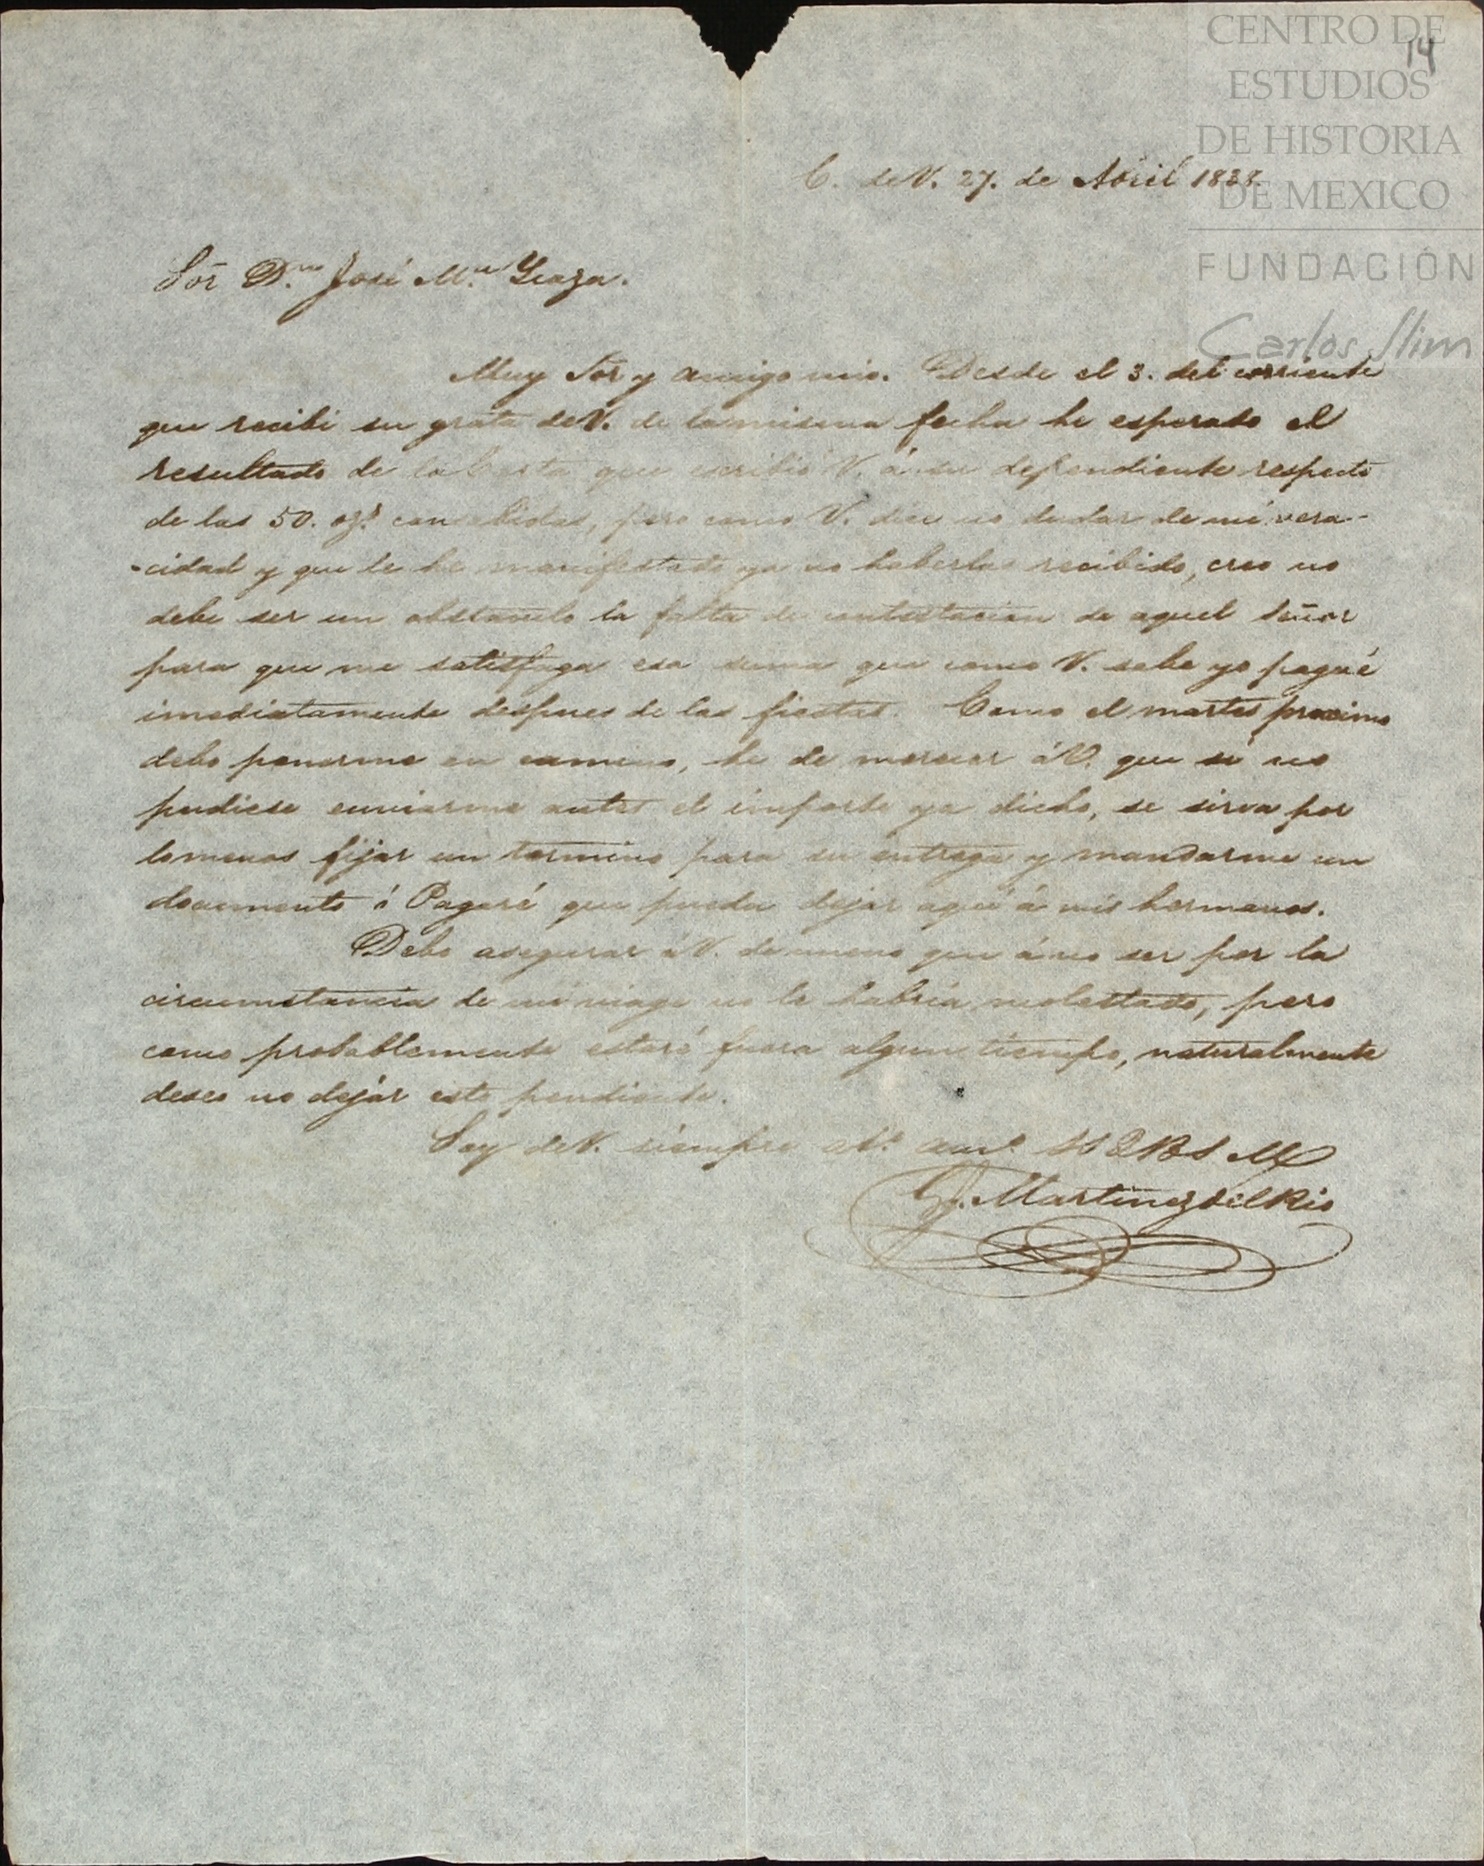 CENTRO DE
ESTUDIOS
DE HISTORIA
DE MEXICO
FUNDACIÓN
Carlos Slim
14
C. de V. 27. de Abril 1838.
Sor̃ D.n José M.a
Muy Sor̃ y amigo mio. Desde el 3. del corriente
que recibi su grata de V. de la misma fecha he esperado el
resultado de la Carta que escribió V. á su dependiente respecto
de las 50. oz.s consabidas, pero como V. dice no dudar de mi vera-
-cidad y que le he manifestado ya no haberlas recibido, creo no
debe ser un obstaculo la falta de contestacion de aquel Señor
para que me satisfaga esa suma que como V. sabe yo pagué
imediatamente despues de las fiestas. Como el martes proximo
debo ponerme en camino, he de merecer á V. que si no
pudiese enviarme antes el importe ya dicho, se sirva por
lo menos fijar un termino para su entrega y mandarme un
documento ó Pagaré que pueda dejar aqui á mis hermanos.
Debo asegurar á V. de nuevo que á no ser por la
circumstancia de mi viage no le habria molestado, pero
como probablemente estaré fuera algun tiempo, naturalmente
deseo no dejár esto pendiente.
Soy de V. siempre at.o am.o SS Q B S M
G. Martinez del Rio